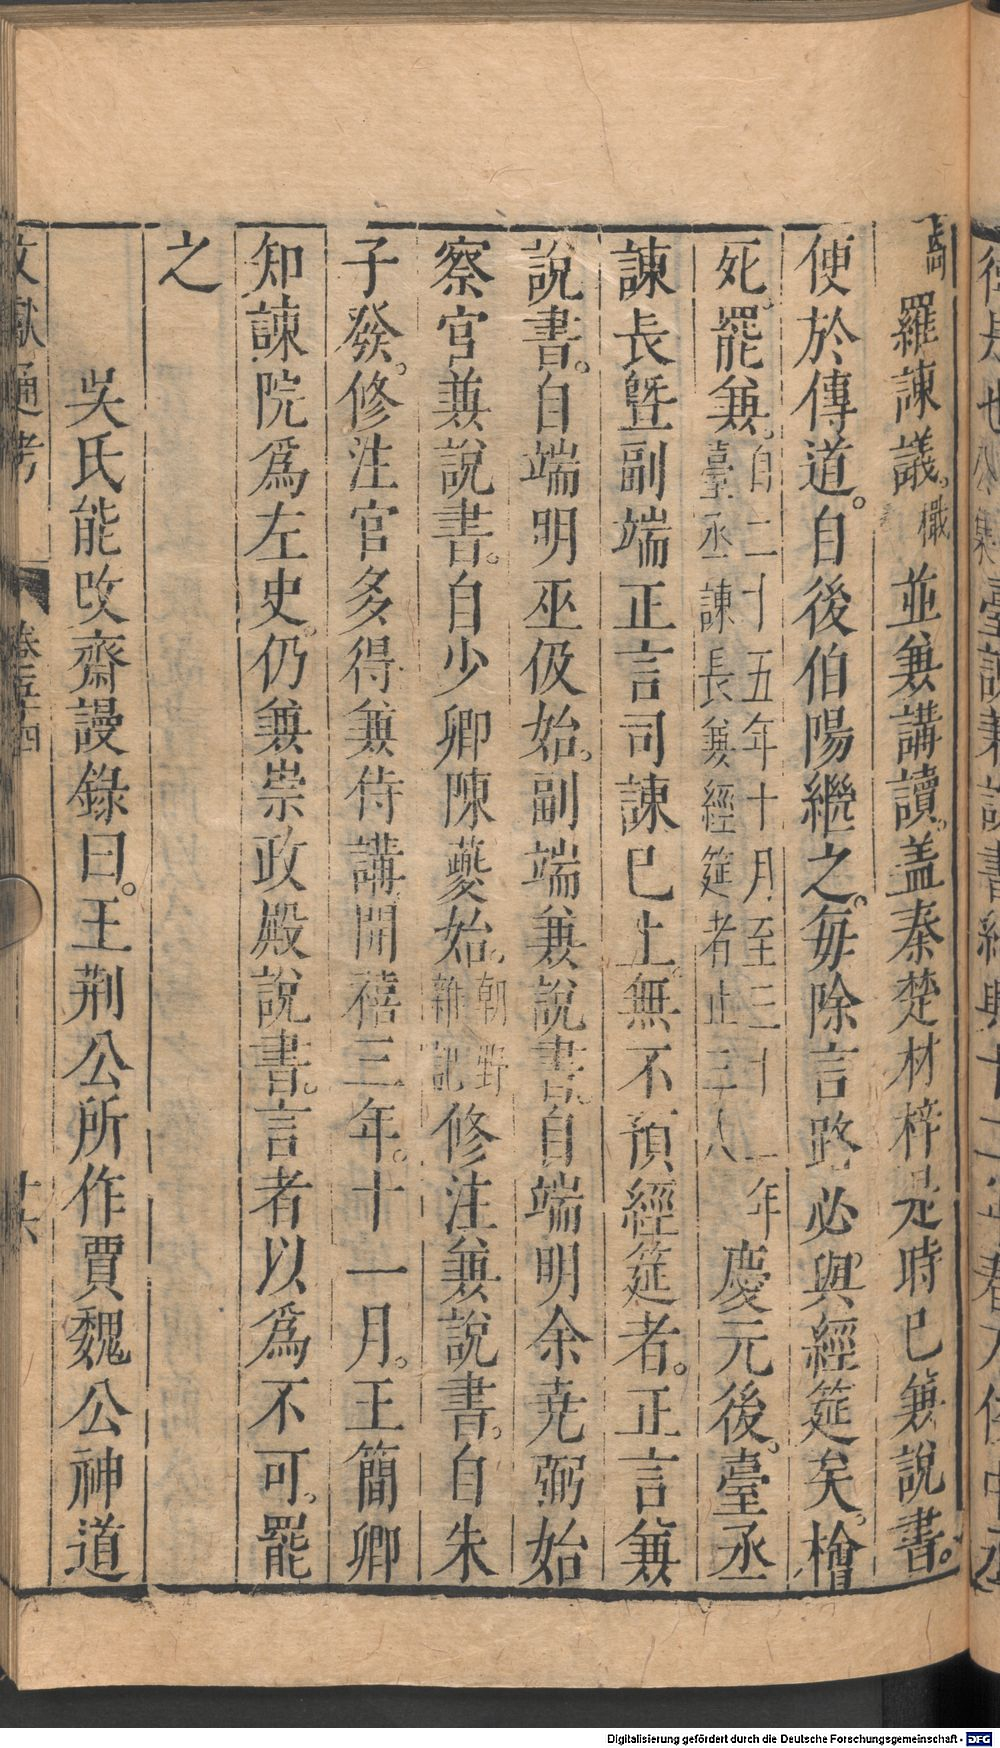 羅諫議。檝並兼講讀。盖秦楚材梓是時已兼說書。
便於傳道。自後伯陽繼之。毎除言路必與經筵矣。檜
死。罷兼。自二十五年十月至三十一年臺丞諫長兼經筵者止三人慶元後。臺丞
諫長曁副端正言司諫已上。無不預經筵者。正言兼
說書。自端明巫伋始。副端兼說書。自端明余尭弼始
察官兼說書。自少卿陳夔始。朝野雜記修注兼說書。自朱
子發。修注官多得兼侍講開禧三年。十一月。王簡卿
知諫院爲左史。仍兼崇政殿說書。言者以爲不可。罷
之
吳氏能改齋謾錄曰。王荆公所作賈魏公神道
文獻通考 卷五十四 十六
Digitalisierung gefördert durch die Deutsche Forschungsgemeinschaft - DFG